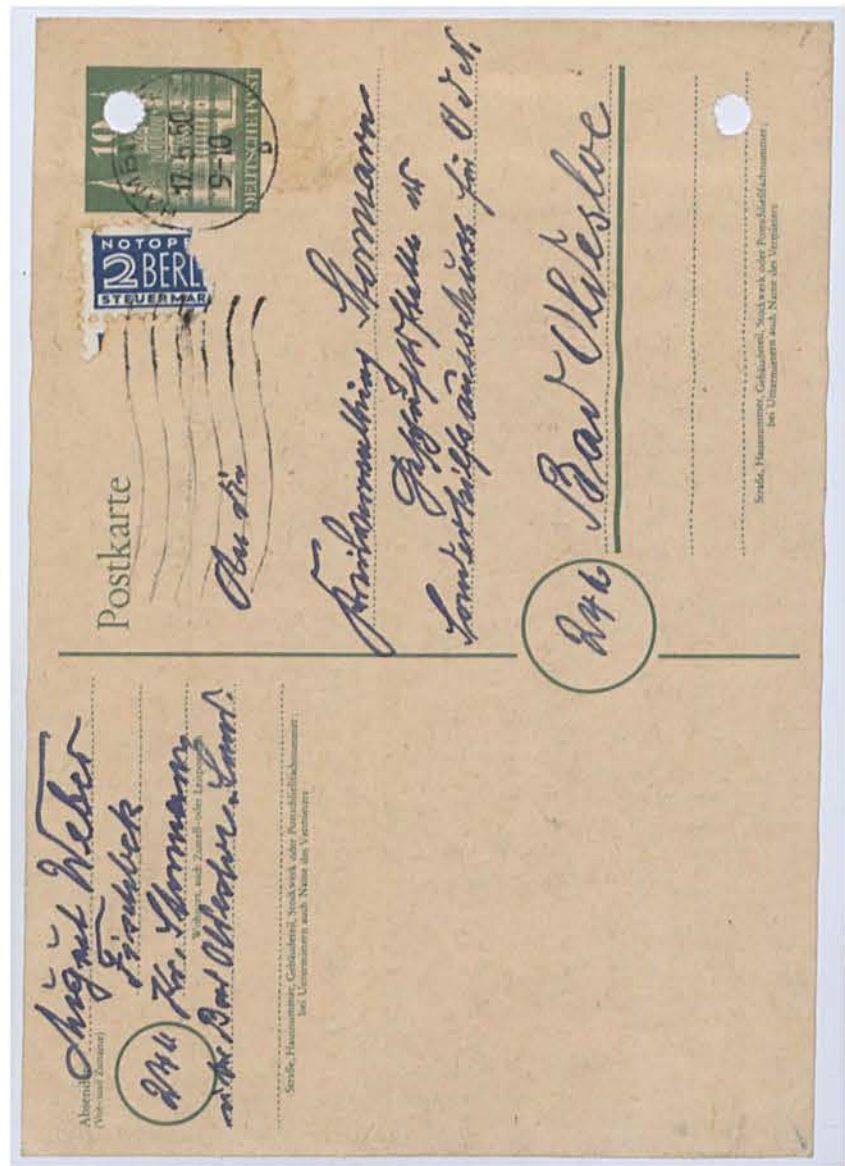 Absender
(Vor- und Zuname)
August Weber
Fischbek
24b Kr. Stormarn
Wohnort, auch Zustell- oder Leitpostamt
über Bad Oldesloe - Land.
Straße, Hausnummer, Gebäudeteil, Stockwerk oder Postschließfachnummer;
bei Untermietern auch Name des Vermieters
Postkarte
10
DEUTSCHE POST
17.5.50
9-10
b
NOTOP
2 BERL
STEUERMAR
An die
Kreisverwaltung Stormarn
Geschäftsstelle
Sonderhilfsausschuss für O d N.
24b Bad Oldesloe
Straße, Hausnummer, Gebäudeteil, Stockwerk oder Postschließfachnummer;
bei Untermietern auch Name des Vermieters